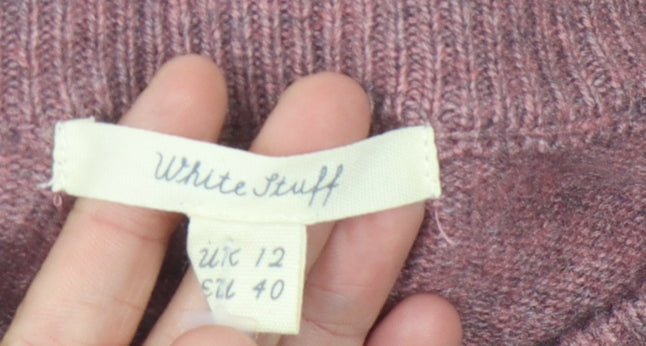 White Stuff
UK 12
EU 40